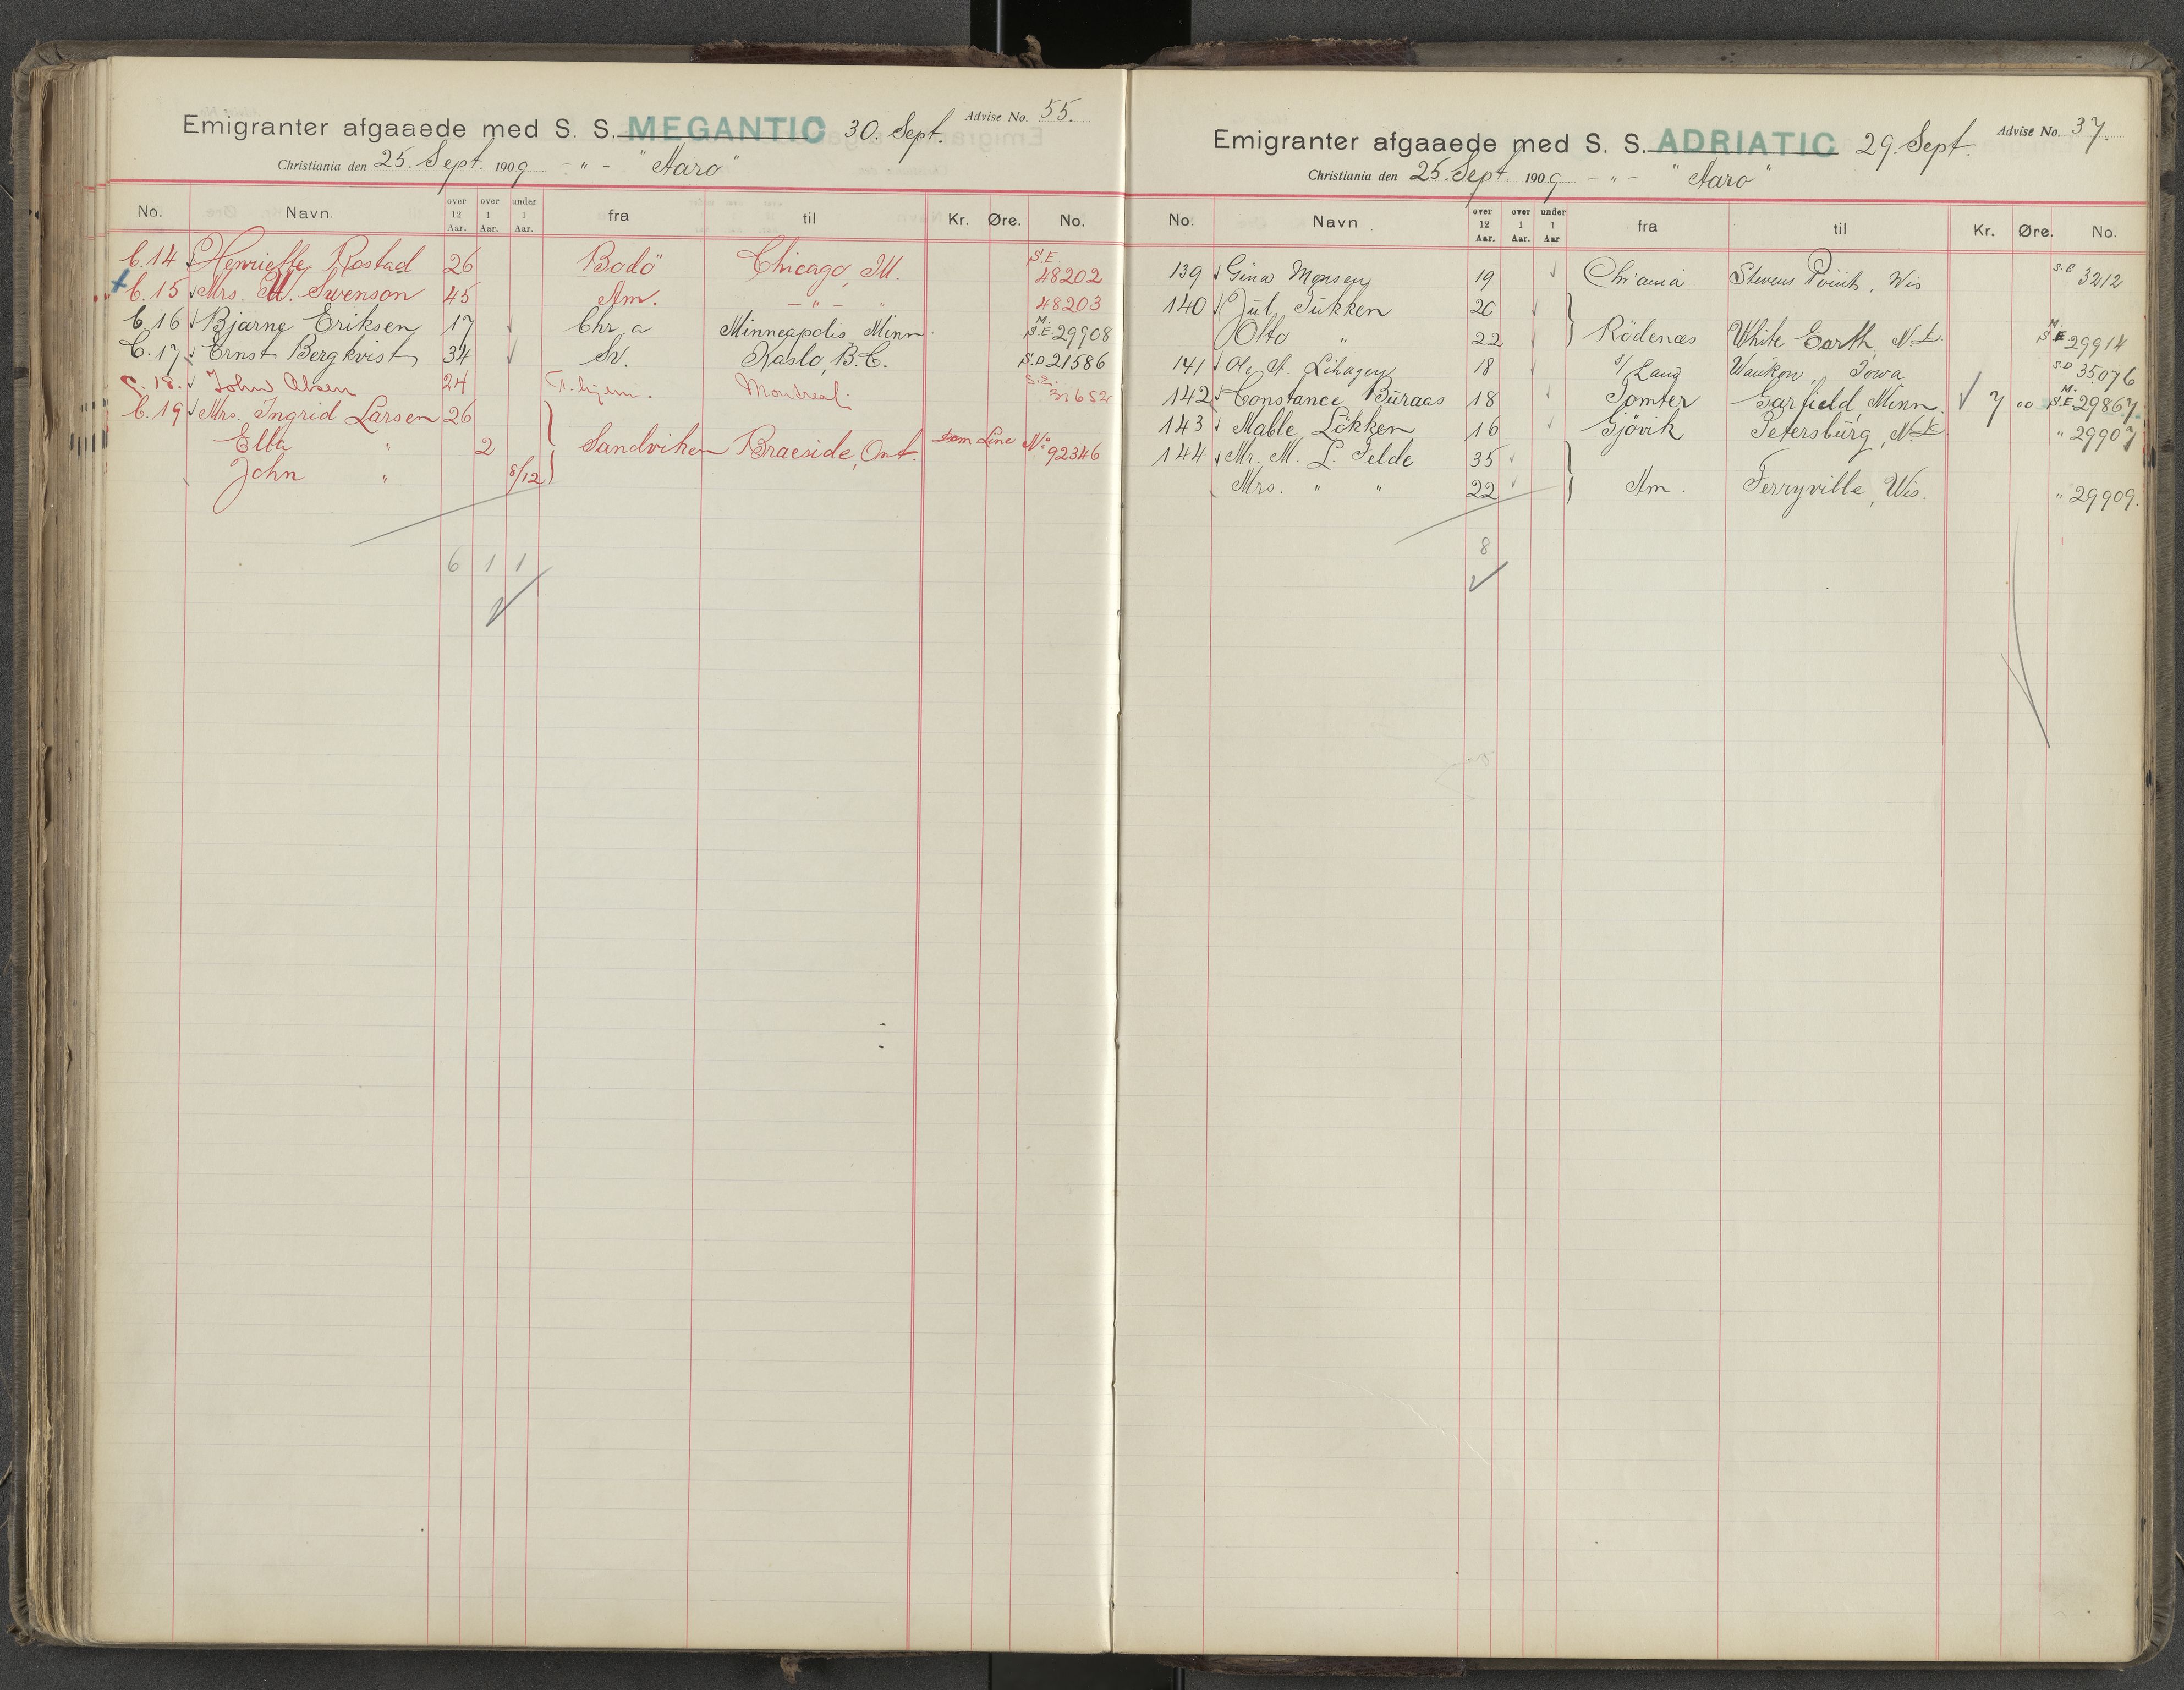 Emigranter afgaaede med S. S. MEGANTIC 30. Sept. Advise No. 55.
Christiania den 25. Sept. 1909 - " - "Aaro"
No. Navn. over 12 Aar. over 1 Aar. under 1 Aar. fra til Kr. Øre. No.
C. 14 Henriette Rostad 26 Bodö Chicago, Ill. S.E. 48202
C. 15 Mrs. M. Swenson 45 Am. - " - " 48203
C. 16 Bjarne Eriksen 17 Chr.a Minneapolis Minn. M. S.E. 29908
C. 17 Ernst Bergkvist 34 Sv. Kaslo, B.C. S.D 21586
C. 18. John Olsen 24 T.hjem. Montreal. S.E. 31652
C. 19 Mrs. Ingrid Larsen 26
Ella " 2 Sandviken Braeside, Ont. Dom Line No 92346
John " 8/12
6 1 1
Emigranter afgaaede med S. S. ADRIATIC 29. Sept. Advise No. 37.
Christiania den 25. Sept. 1909 - " - "Aaro"
No. Navn. over 12 Aar. over 1 Aar. under 1 Aar fra til Kr. Øre. No.
139 Gina Monsen 19 Chr'ania Stevens Point, Wis S.E 3212
140 Jul. Tukken 20
Otto " 22 Rödenæs White Earth, N.D. M. S.E 29914
141 Ole A. Lihagen 18 s/ Laug Waukon, Iowa S.D 35076
142 Constance Buraas 18 Tomter Garfield, Minn. 7 00 M. S.E. 29867.
143 Mable Lökken 16 Gjövik Petersburg, N.D. " 29907
144 Mr. M. L. Telde 35
Mrs. " " 22 Am. Ferryville, Wis. " 29909.
8